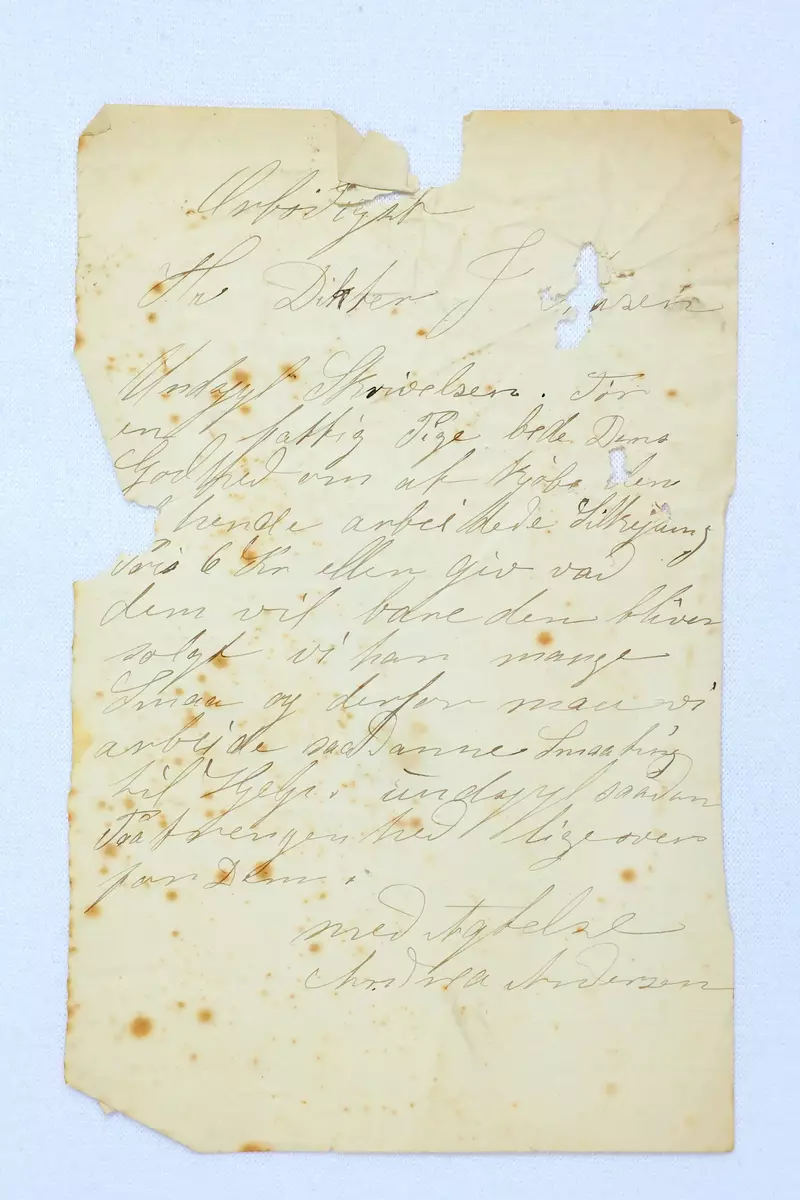 Ærbødigst
Hr Dikter J
Undsyl Skrivelsen. Tør
en fattig Pige bede Dems
Godhed om at kjøbe den
hende arbeidede
Pris 6 Kr eller giv vad
dem vil bare den bliver
solgt vi han mange
Smaa og derfor maa vi
arbeide saadanne Smaating
til Hjelp. undsyl saadan
Paatrengenhed ligeovers
for Dem.
med Agtelse
Andrea Andersen